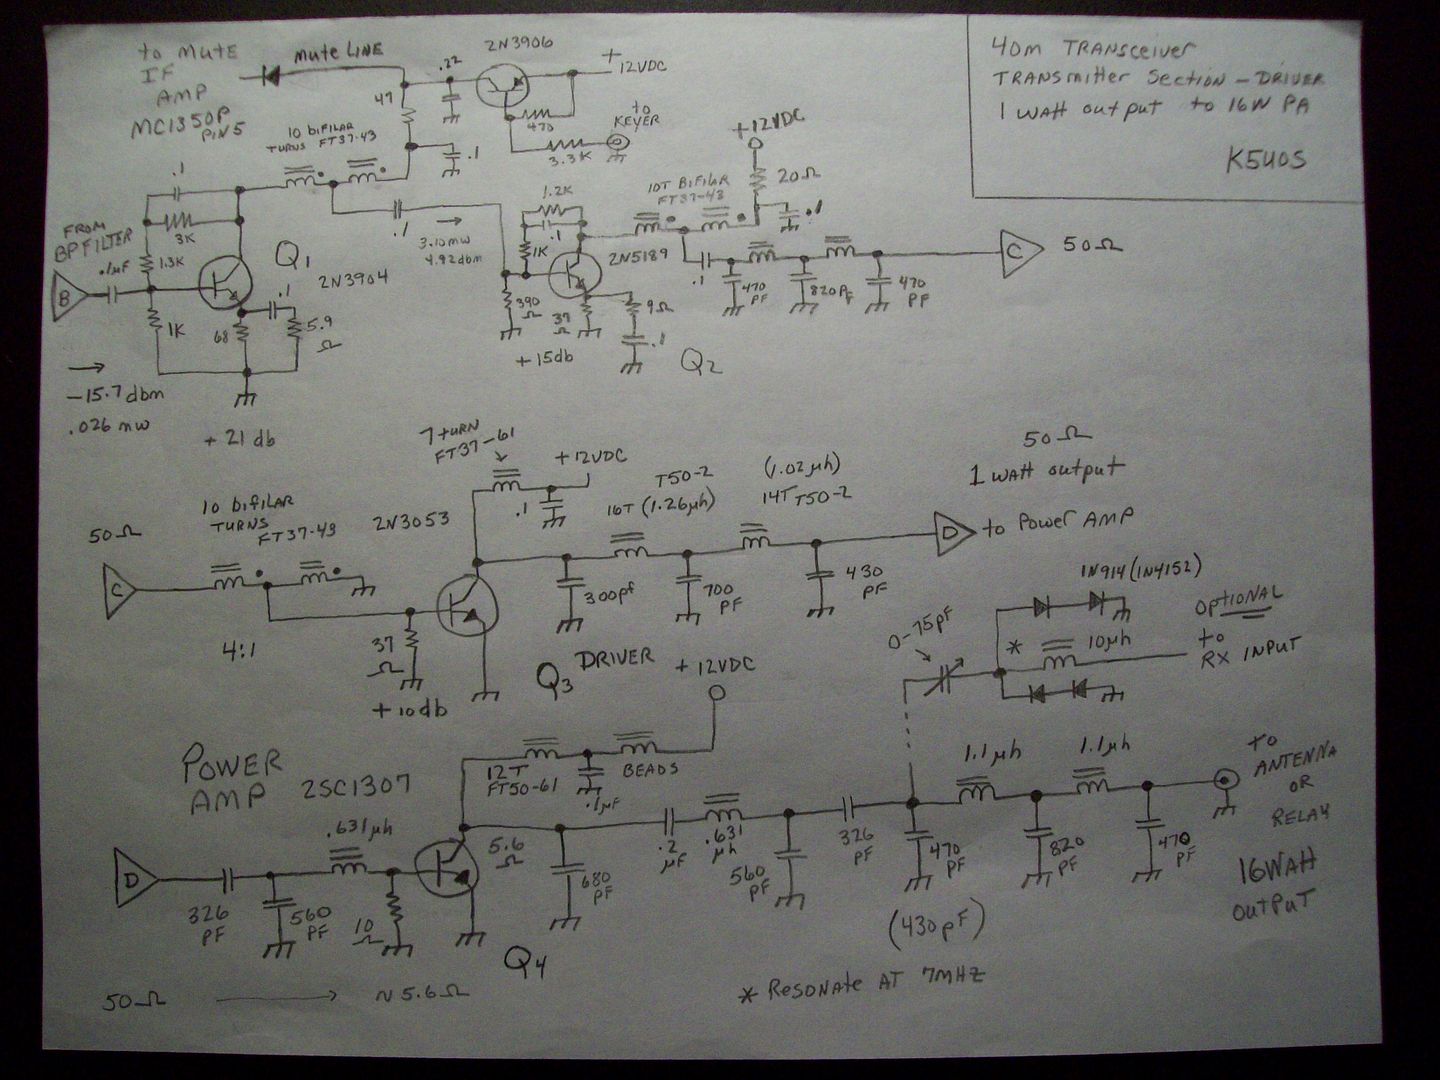 40m TRANSCEIVER
TRANSMITTER SECTION - DRIVER
1 WATT output to 16W PA
K5UOS
to MUTE
IF
AMP
MC1350P
PIN5
MUTE LINE
2N3906
+
12VDC
.22
47
470
to
KEYER
3.3K
.1
10 BIFILAR
TURNS FT37-43
.1
3K
1.3K
FROM
BP FILTER
.1µF
B
1K
Q1
2N3904
.1
68
5.9
Ω
-15.7 dbm
.026 mw
+21 db
.1
3.10mw
4.92dbm
1.2K
.1
1K
390
Ω
39
Ω
2N5189
9Ω
.1
+15db
Q2
10T BIFILAR
FT37-43
+12VDC
20Ω
.1
.1
470
PF
820PF
470
PF
C
50Ω
7 TURN
FT37-61
+12VDC
.1
50Ω
C
10 bifilar
TURNS
FT37-43
4:1
2N3053
37
Ω
+10db
Q3 DRIVER
T50-2
16T (1.26µh)
(1.02µh)
14T T50-2
300pf
700
PF
430
PF
50Ω
1 WATT output
D
to Power AMP
1N914 (1N4152)
0-75pF
*
10µh
OPTIONAL
to
RX INPUT
POWER
AMP
2SC1307
+12VDC
12T
FT50-61
BEADS
.1µF
D
326
PF
560
PF
.631µh
10
Ω
5.6
Ω
Q4
680
PF
.2
µF
.631
µh
560
PF
326
PF
470
PF
(430pF)
1.1µh
820
PF
1.1µh
470
PF
to
ANTENNA
OR
RELAY
16WAtt
OUTPUT
50Ω
~5.6Ω
* RESONATE AT 7MHZ